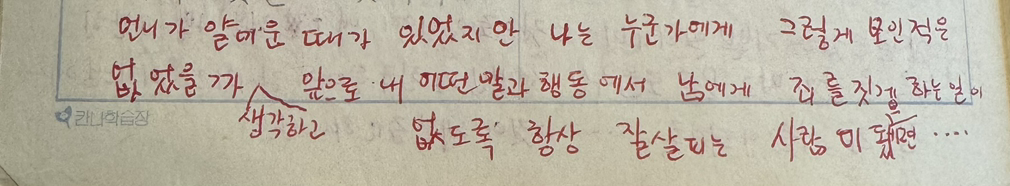 언니가 얄미운 때가 있었지만 나는 누군가에게 그렇게 보인적은
없었을까 앞으로 내 어떤 말과 행동에서 남에게 죄를 짓게 하는 일이
생각하고
없도록 항상 잘 살피는 사람이 됐으면 ....
칸나학습장